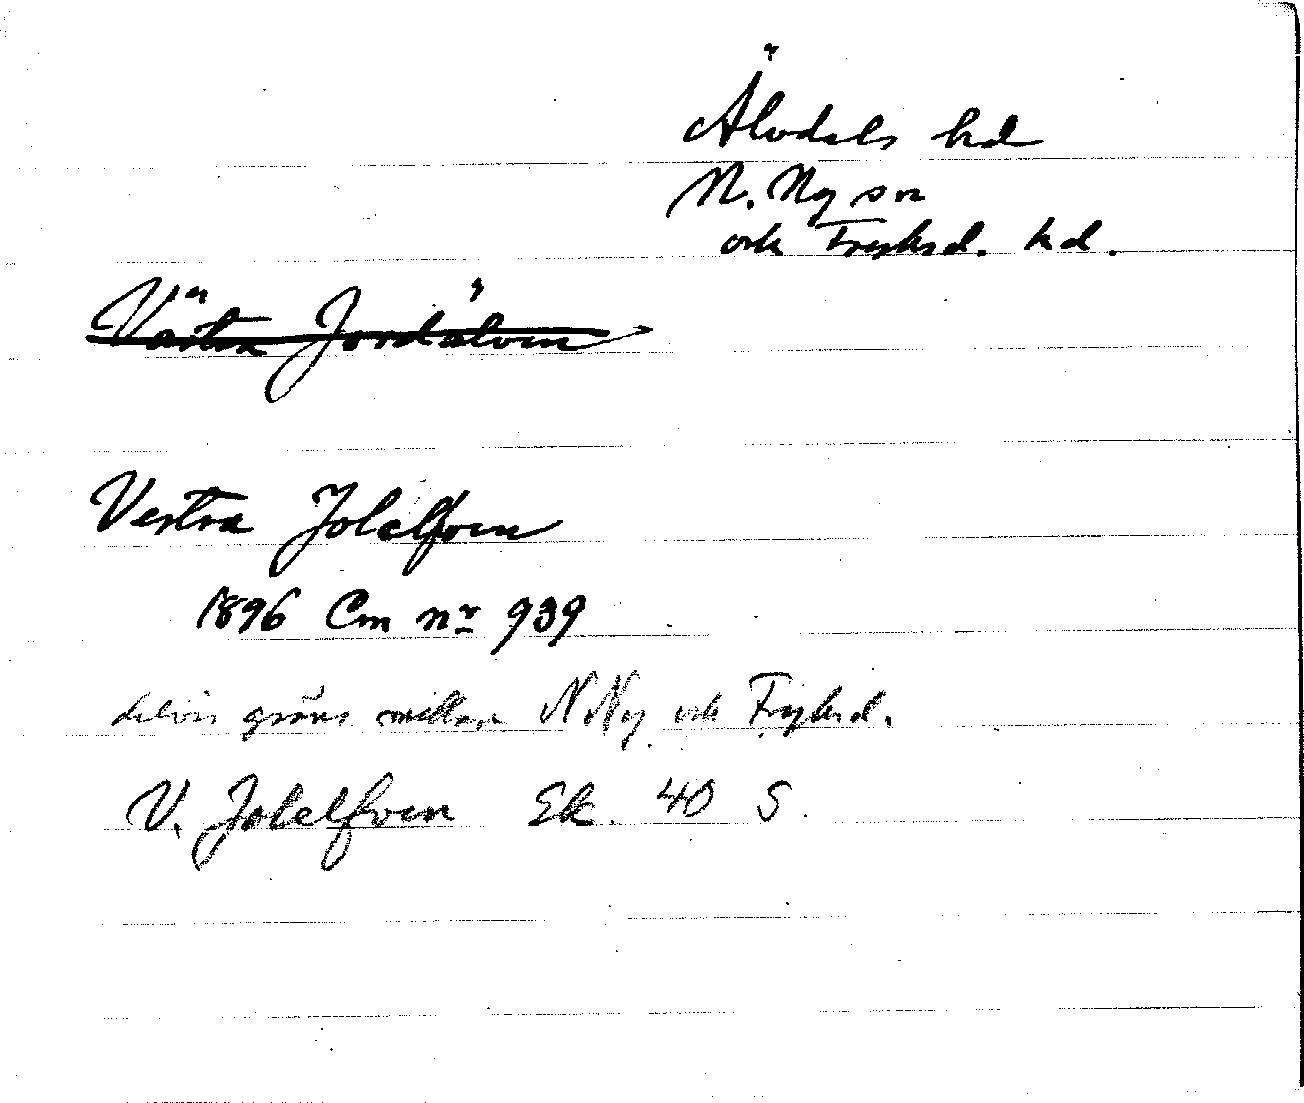 Älvdals hd
N. Ny sn
och Fryksd. hd.
Västra Jordälven
Vestra Jolelfven
1896 Cm nr 939
delvis gräns mellan N Ny och Fryksd.
V. Jolelfven Ek. 40 S